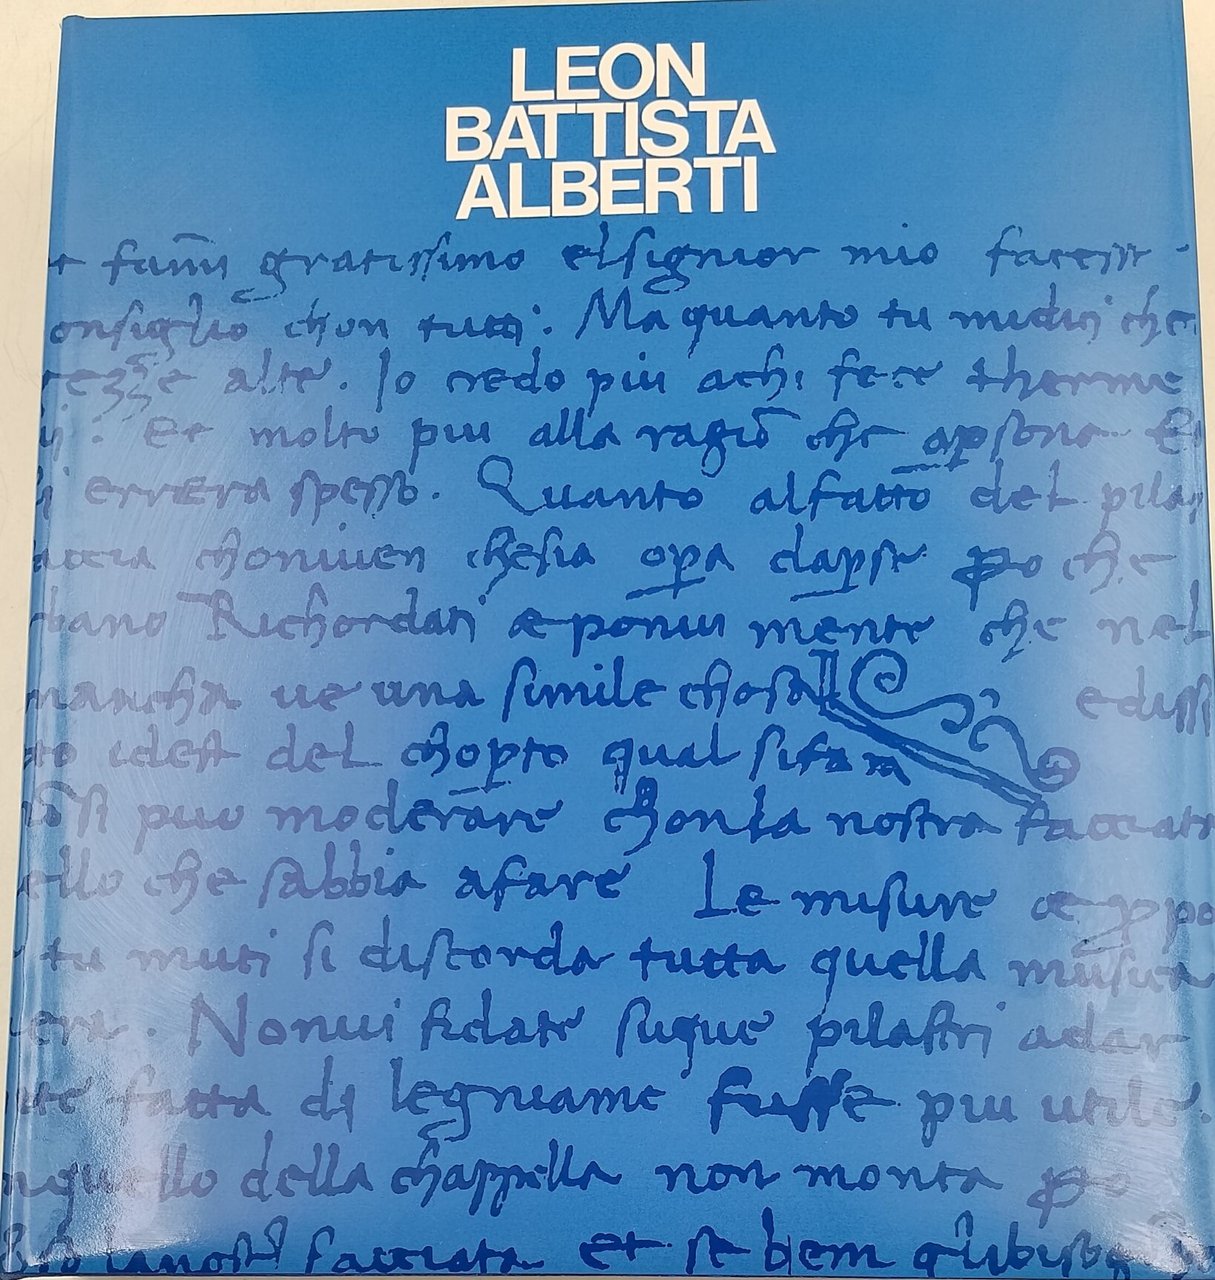 LEON
BATTISTA
ALBERTI
gratissimo el signior mio
chon tutti. Ma quanto tu midici che
alte. Io credo più achi fece therme
Et molto piu alla ragiō che
errera spesso. Quanto al fatto del
chonivien che sia opa dapse po che
Richordati æ ponivi mente che nel
mancha ve una simile chosa
idest del chopto qual sifara
puo moderare chonla nostra
che sabbia afare Le misure æ
tu muti si discorda tutta quella musica
Nonvi fidate suque pilastri adar
fatta di legniame fusse piu utile.
quello della chappella non monta po
facciata et se bem